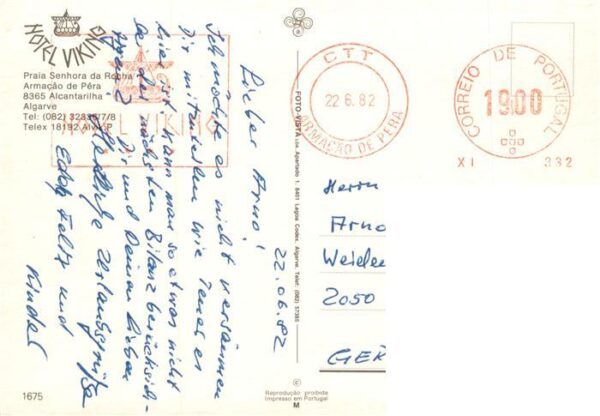 HOTEL VIKING
Praia Senhora da Rocha
Armação de Pêra
8365 Alcantarilha
Algarve
Tel: (082) 32336/7/8
Telex 18192 Alvi P
HOTEL VIKING
CTT
22 6. 82
ARMAÇÃO DE PERA
CORREIO DE PORTUGAL
1900
XI 332
22.06.82
Lieber Arno!
Ich möchte es nicht versäumen
Dir mitzuteilen wie Teuer es
hier ist. Kann man so etwas nicht
bei der nächsten Bilanz berücksich-
Dir und Deinen Lieben
Herzliche Urlaubsgrüße
und
Kinder
Herrn
Arno
Weide
2050
GER
FOTO-VISTA Lda. Apartado 1. 8401 Lagoa Codex. Algarve. Telef. (082) 57365
1675
©
Reprodução proibida
Impresso em Portugal
M